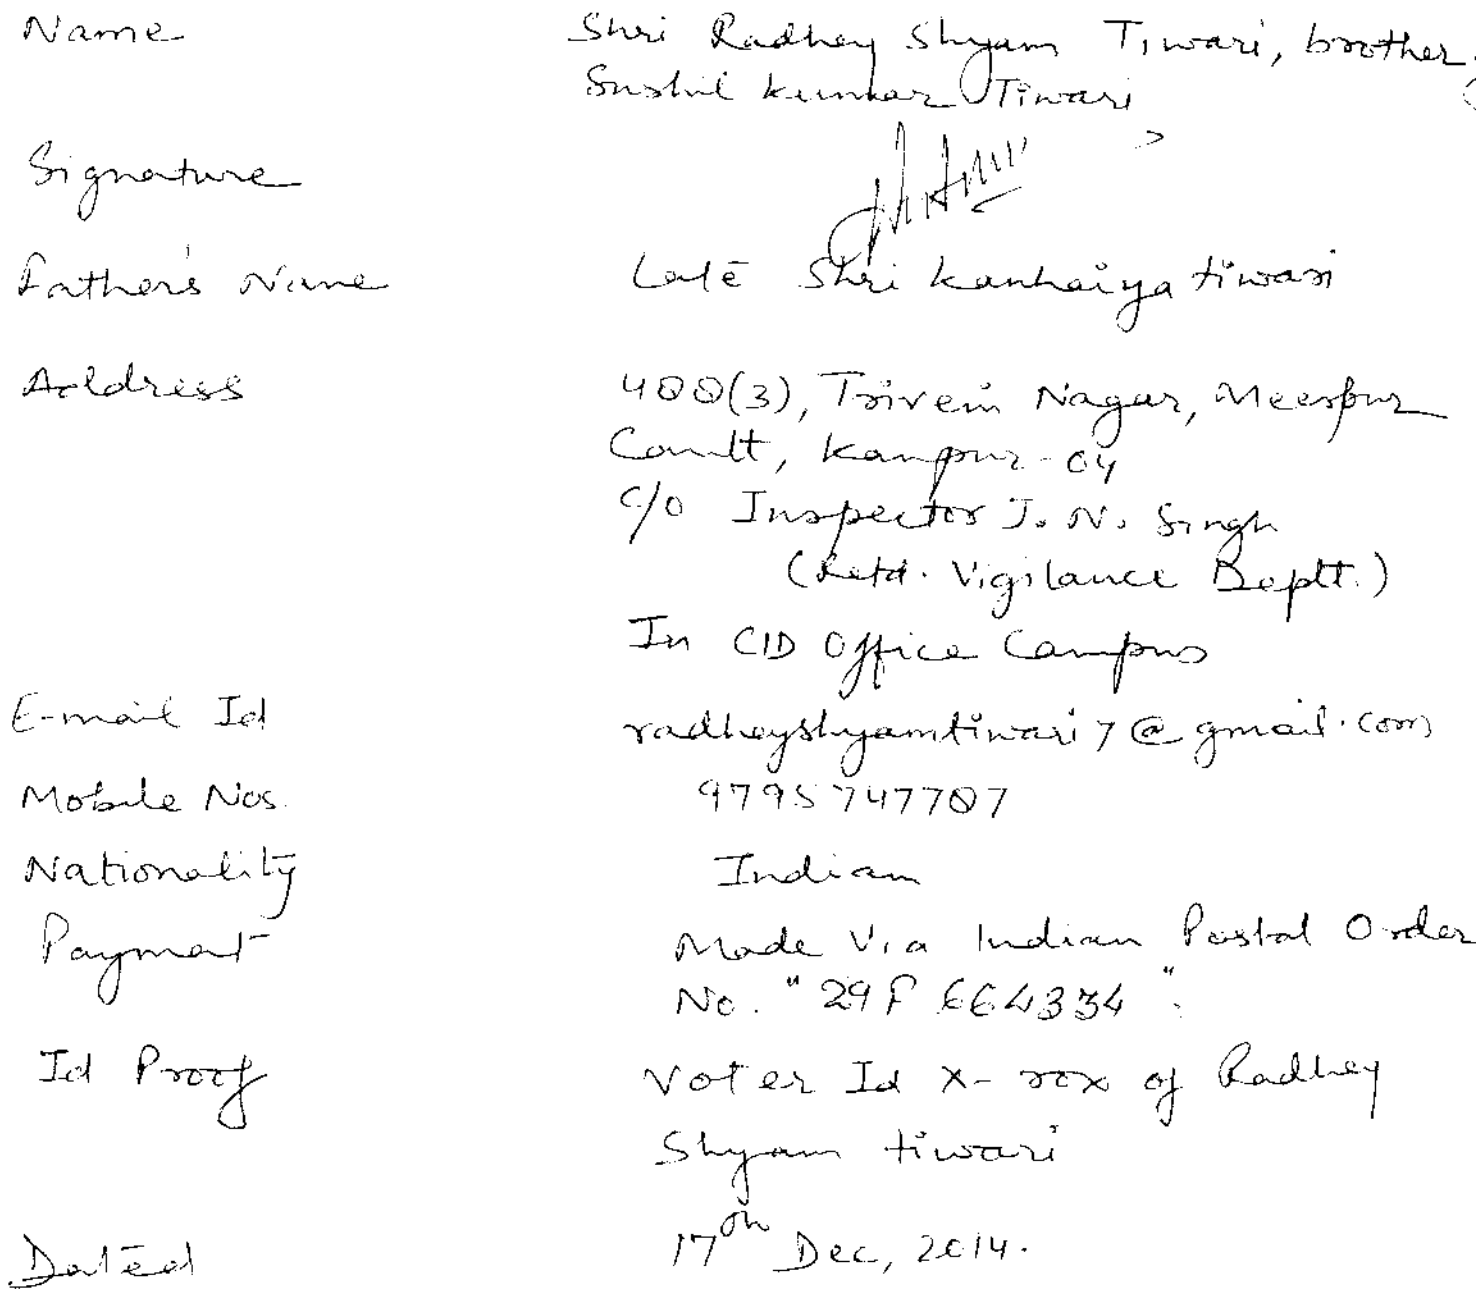 Name Shri Radhey Shyam Tiwari, brother,
Sushil Kumar Tiwari
Signature
Father's Name Late Shri Kanhaiya tiwari
Address 400(3), Triveni Nagar, Meerpur
Cantt, Kanpur-04
C/o Inspector J. N. Singh
(Retd. Vigilance Deptt.)
In CID Office Campus
E-mail Id radheyshyamtiwari7@gmail.com
Mobile Nos. 9795747707
Nationality Indian
Payment Made Via Indian Postal Order
No. "29F 664334".
Id Proof Voter Id X-rox of Radhey
Shyam tiwari
Dated 17th Dec, 2014.